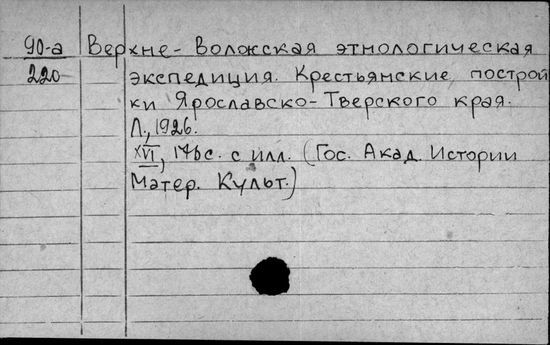 90-а Верхне-Волжская этнологическая
220 экспедиция. Крестьянские построй
ки Ярославско-Тверского края.
Л., 1926.
XVI, 176с. с илл. (Гос. Акад. Истории
Матер. Культ.)